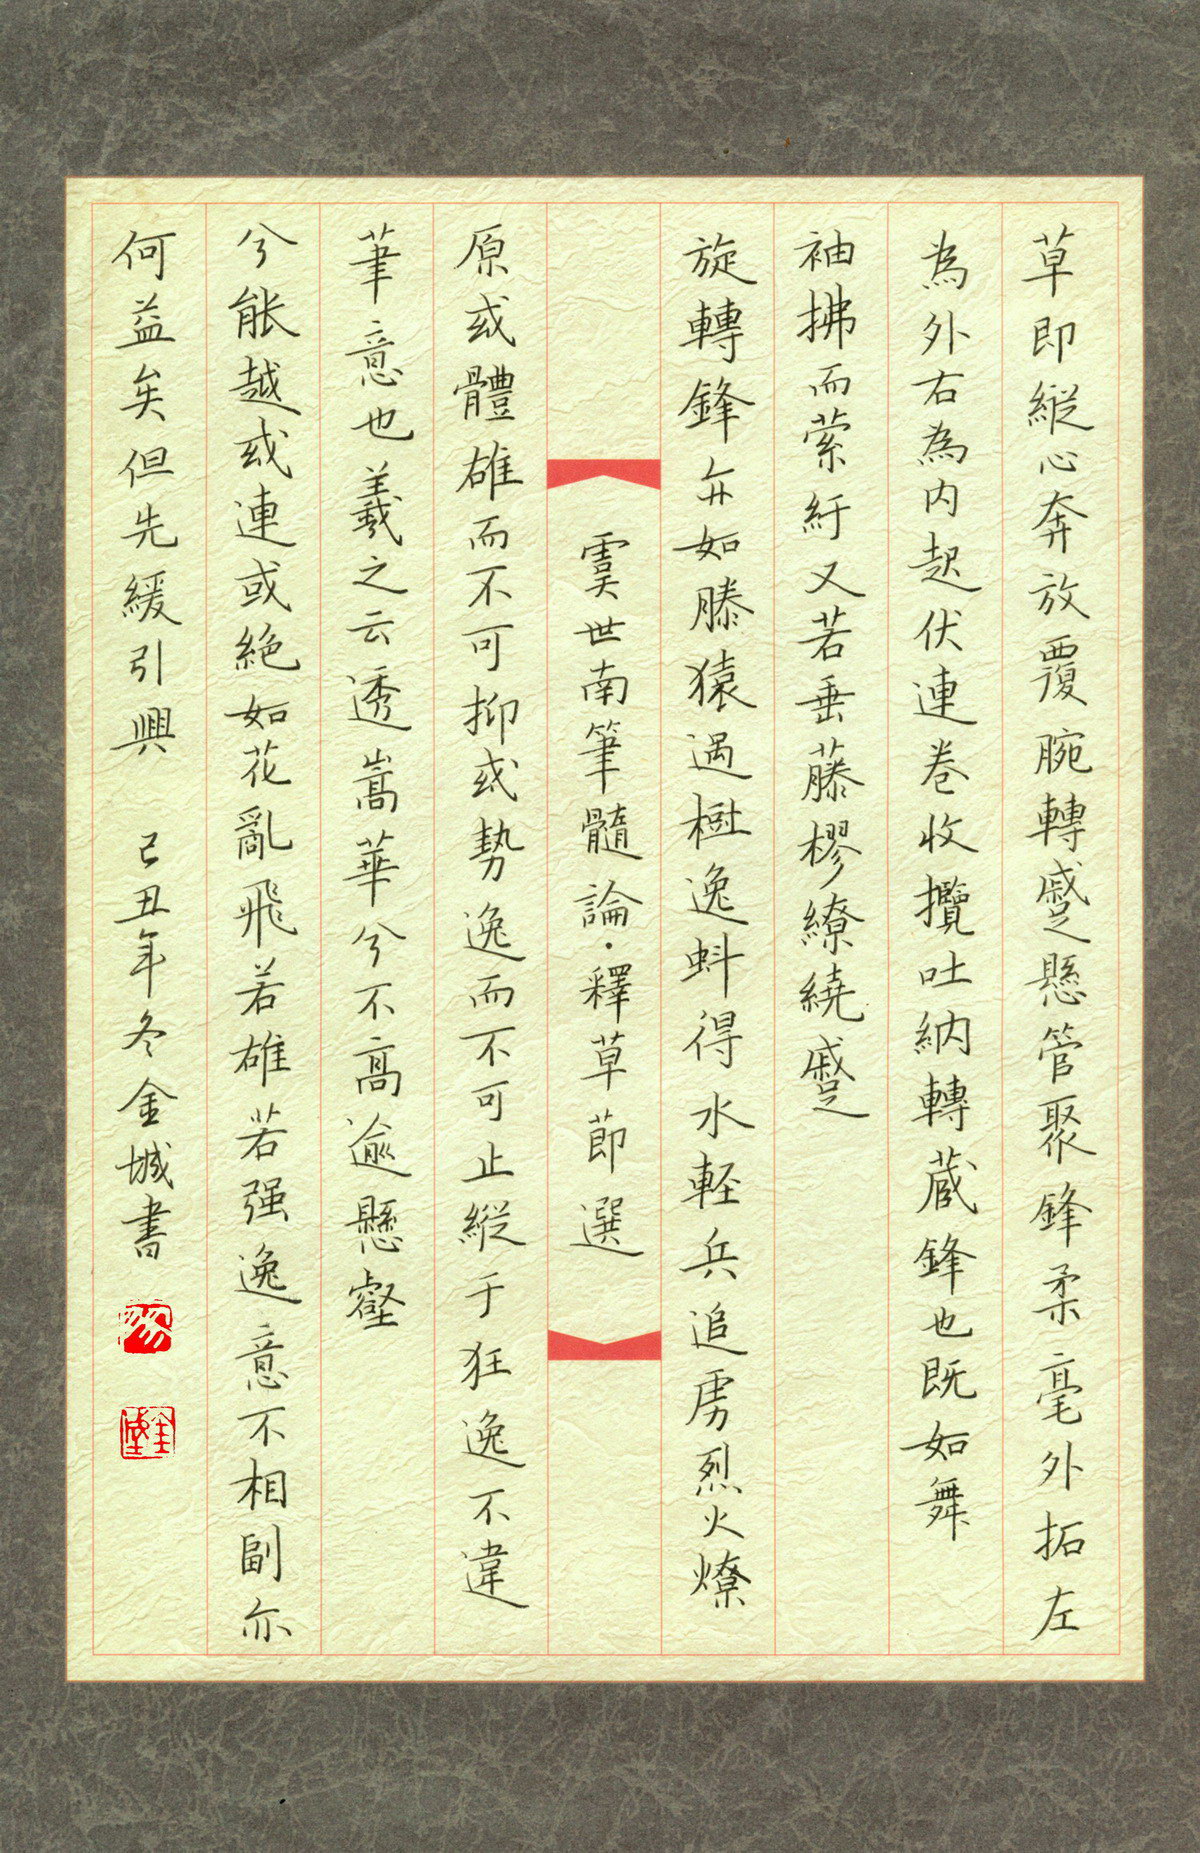 草即縱心奔放覆腕轉蹙懸管聚鋒柔毫外拓左
為外右為内起伏連卷收攬吐納轉蔵鋒也既如舞
袖拂而縈紆又若垂藤樛繚繞蹙
旋轉鋒亦如騰猿過樹逸蚪得水輕兵追虜烈火燎
虞世南筆髓論·釋草節選
原或體雄而不可抑或勢逸而不可止縱于狂逸不違
筆意也羲之云透嵩華兮不高逾懸壑
兮能越或連或絕如花亂飛若雄若强逸意不相副亦
何益矣但先緩引興 己丑年冬金城書
金城